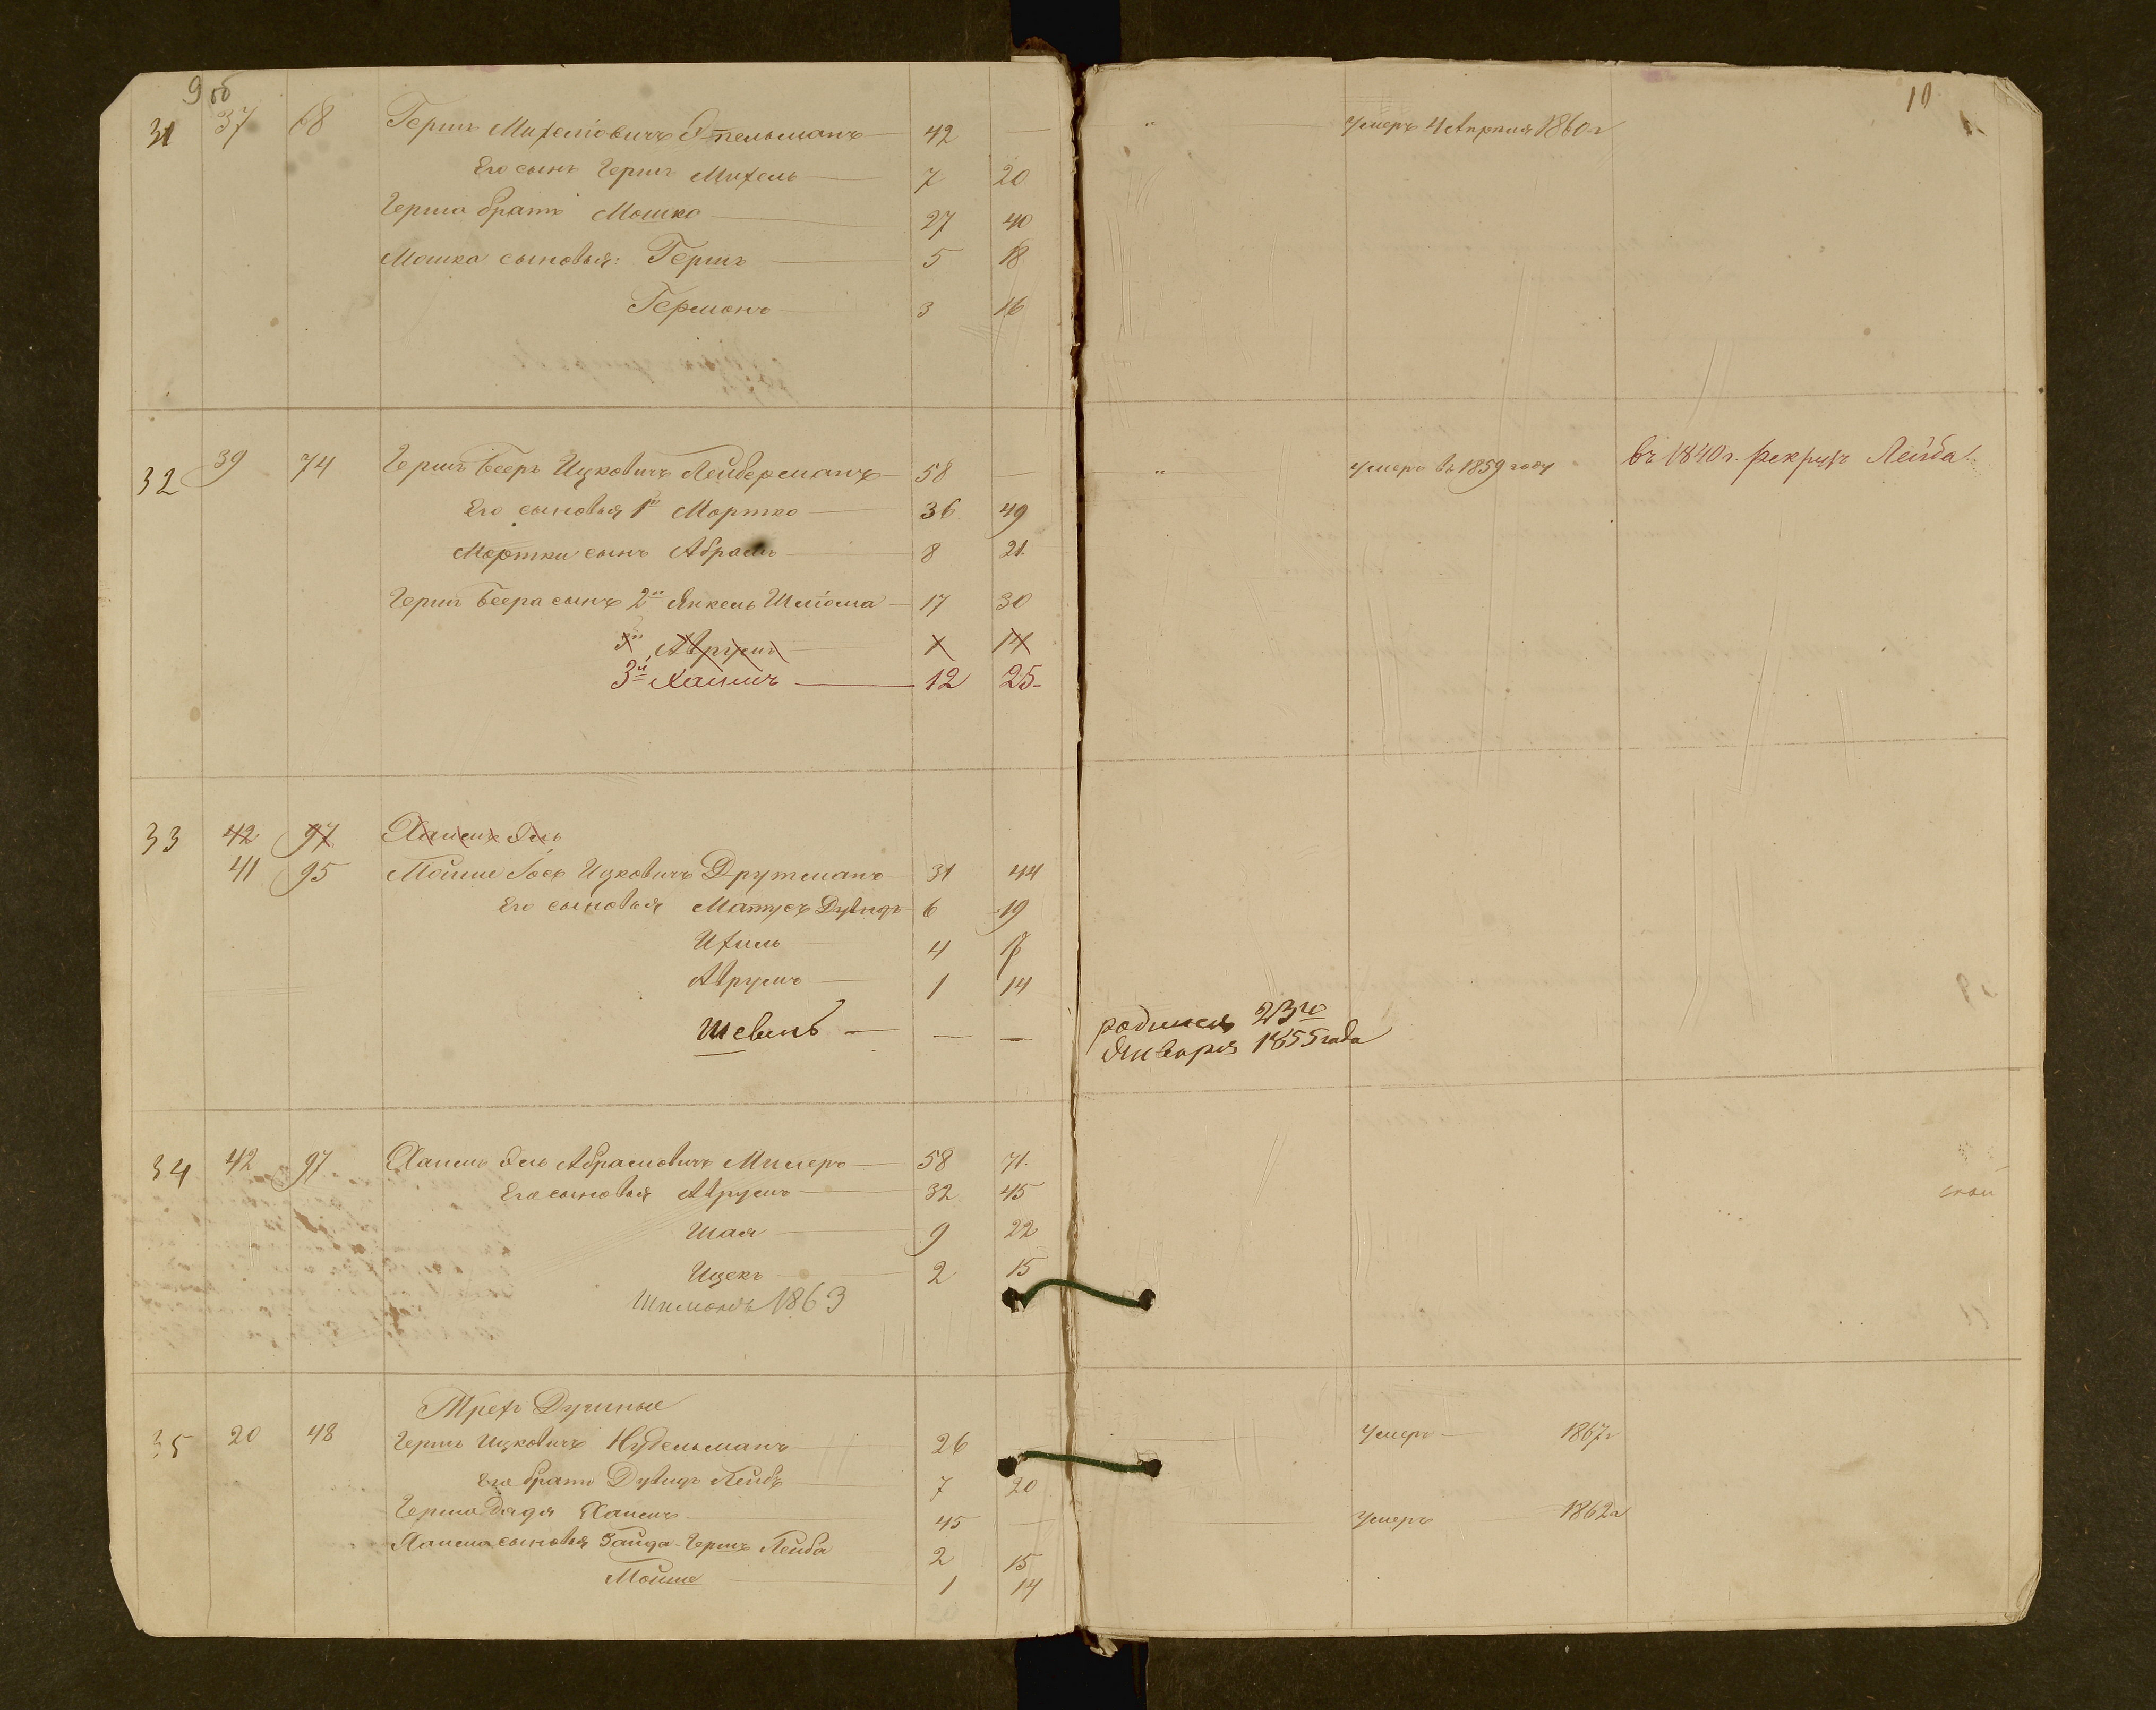 9 об
31 37 68 Гершъ Михелiовичъ Этельманъ 42 —
Его сынъ Герш Михель 7 20
Герша братъ Мошко 27 40
Мошка сыновья: Гершъ 5 18
Гермонъ 3 16
32 39 74 Герш Бееръ Ицковичъ Лейдерманъ 58 —
Его сыновья 1й Мортко 36 49
Мортки сынъ Абрамъ 8 21
Герш Беера сынъ 2й Янкель Шлiома 17 30
3й Аврумъ 1 14
3й Хаимъ 12 25
33 42 97 Хаимъ Эль
41 95 Мойше Iосъ Ицковичъ Друтманъ 31 44
Его сыновья Матусъ Дувидъ 6 19
Ихиль 4 17
Аврумъ 1 14
Шевель — — —
34 42 97 Хаимъ Эль Абрамовичъ Милеръ 58 71
Его сыновья Аврумъ 32 45
Шая 9 22
Ицекъ 2 15
Шимонъ 1863
Трехъ Душные
35 20 48 Гершъ Ицковичъ Нудельманъ 26
Его братъ Дувидъ Лейбъ 7 20
Герша дядя Хаимъ 45 —
Хаима сыновья Зайда-Гершъ Лейба 2 15
Мойше 1 14
10
" Умеръ 4 Апреля 1860 г
" умеръ въ 1859 году въ 1840 г. рекрутъ Лейба
родился 23го
Января 1855 года
умеръ 1867 г
умеръ 1862 г